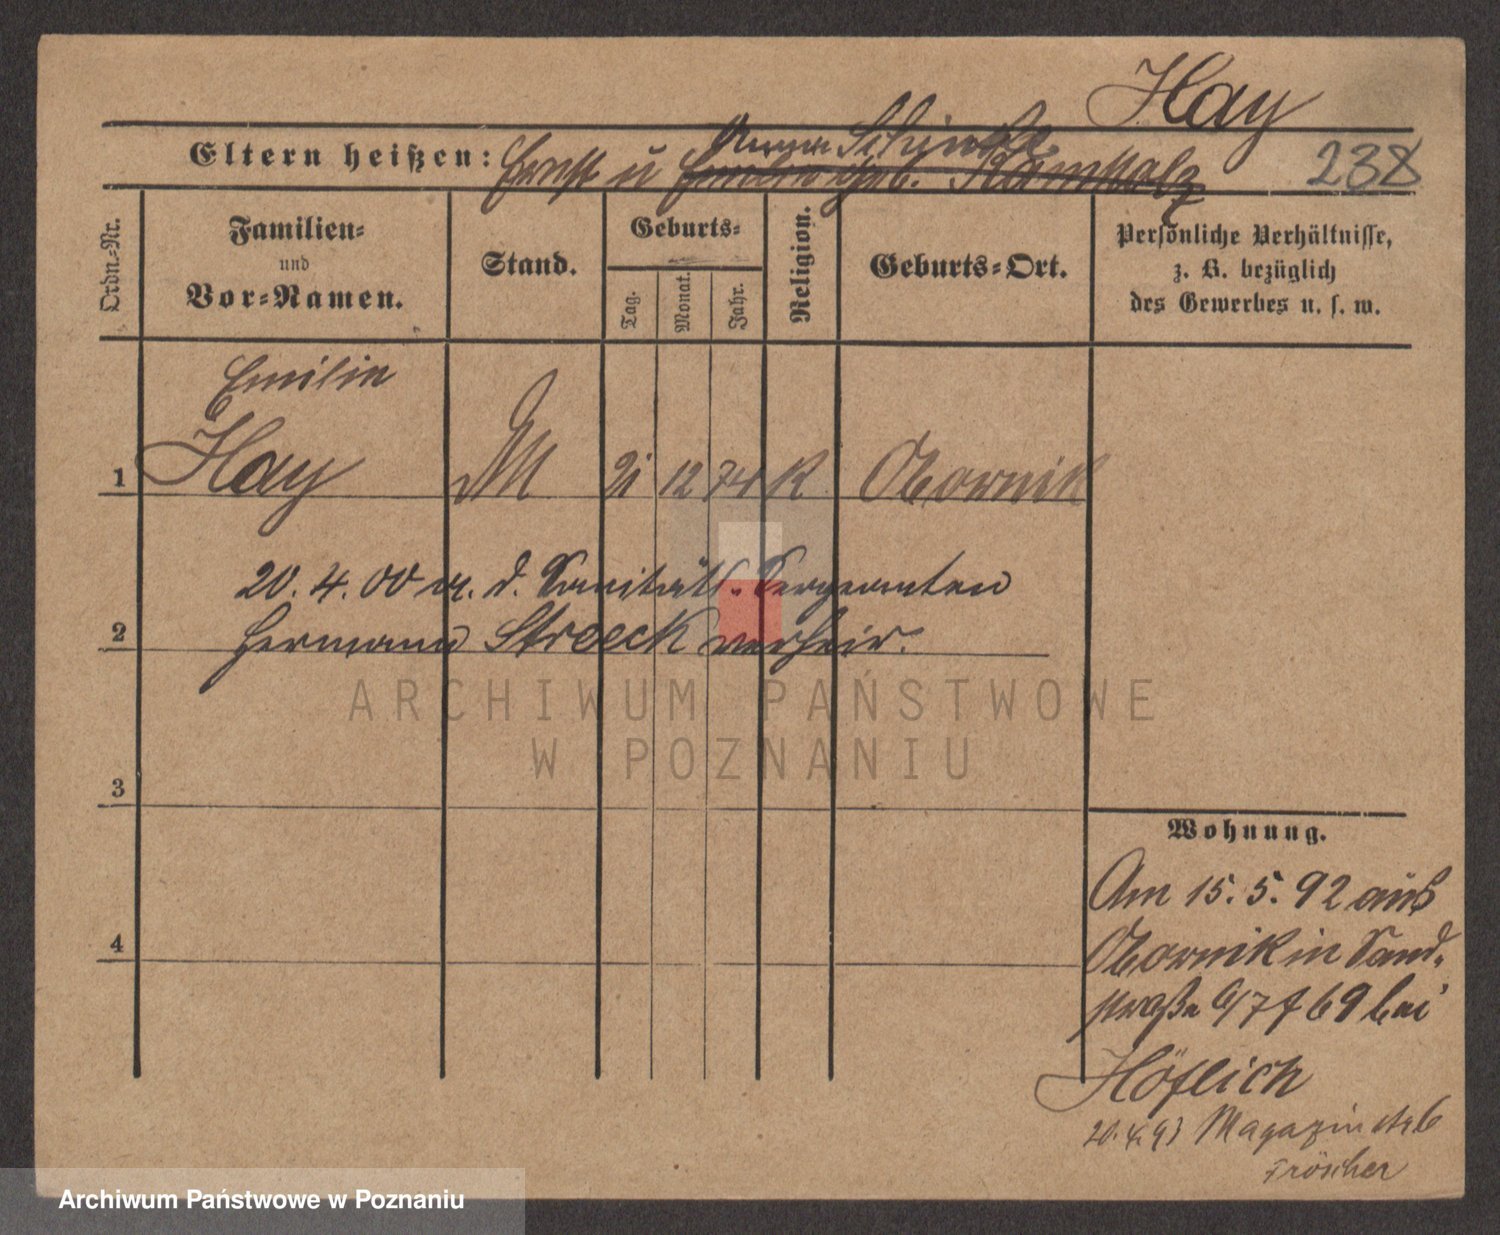 Hay
Anna Schinke
Eltern heißen: Ernst u Emilie geb. Ramholz
238
Ordn.-Nr.
Familien-
und
Vor-Namen.
Stand.
Geburts-
Tag.
Monat.
Jahr.
Religion.
Geburts-Ort.
Persönliche Verhältnisse,
z. B. bezüglich
des Gewerbes u. s. w.
Emilie
1 Hay DM 21 12 74 K Obornik
20. 4. 00 m. d. Sanitäts-Sergeanten
2 Hermann Streeck verheir.
ARCHIWUM PAŃSTWOWE
W POZNANIU
3
Wohnung.
Am 15. 5. 92 aus
4
Obornik in Sand-
straße 6/7 f 69 bei
Höflich
20. 4. 93 Magazinstr 6
Fröscher
Archiwum Państwowe w Poznaniu